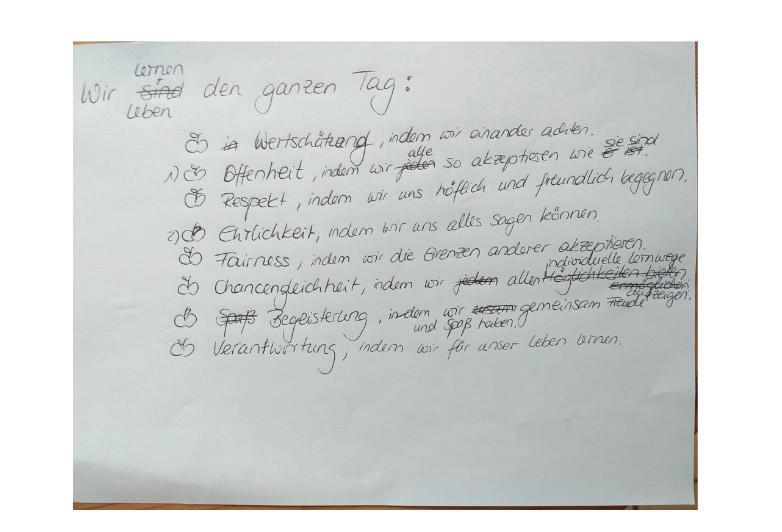 lernen
+
Wir sind den ganzen Tag:
leben
in Wertschätzung, indem wir einander achten.
alle sie sind
1) Offenheit, indem wir jeden so akzeptieren wie er ist.
Respekt, indem wir uns höflich und freundlich begegnen.
2) Ehrlichkeit, indem wir uns alles sagen können.
Fairness, indem wir die Grenzen anderer akzeptieren.
individuelle Lernwege
Chancengleichheit, indem wir jedem allen Möglichkeiten bieten.
ermöglichen
aufzeigen.
Spaß Begeisterung, indem wir zusam gemeinsam Freude
und Spaß haben.
Verantwortung, indem wir für unser Leben lernen.